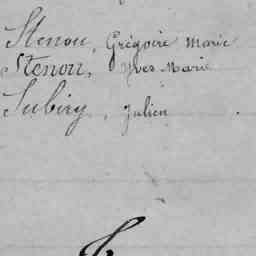 Stenou, Grégoire Marie
Stenou, Yves Marie
Subiry, Julien